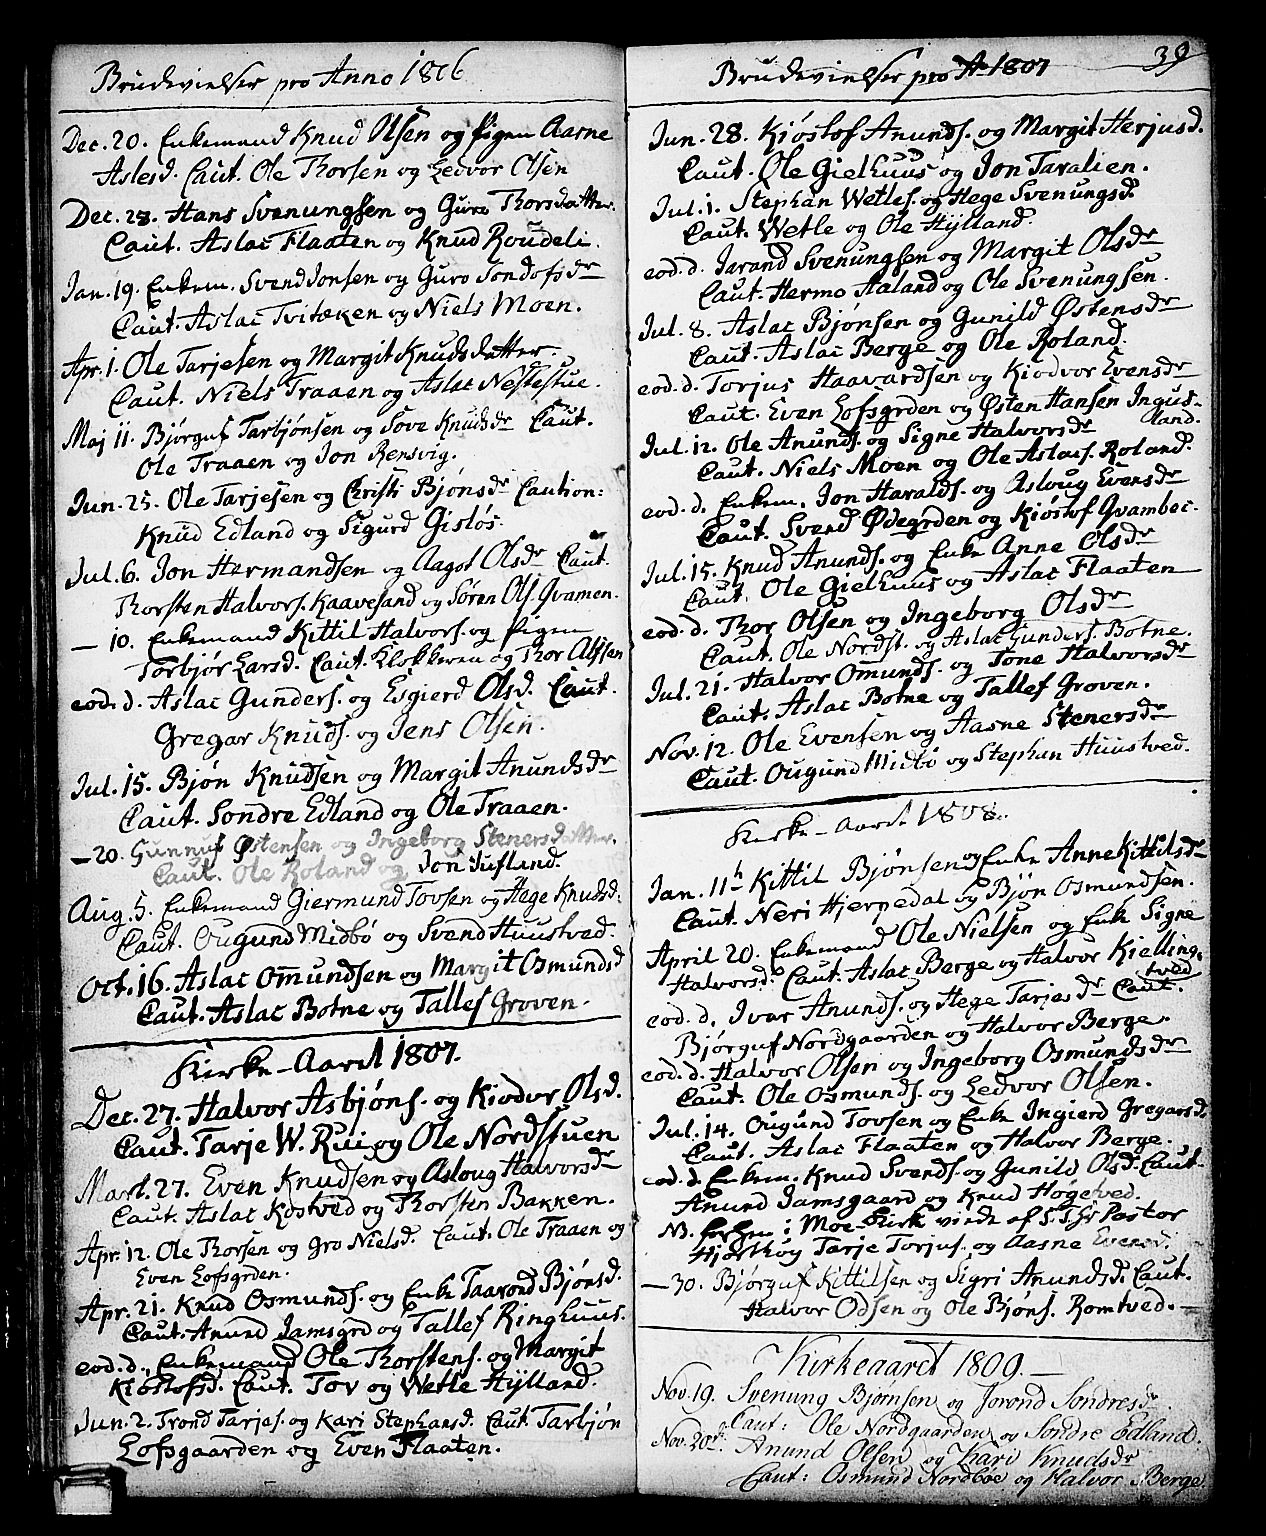 Brudevielser pro Anno 1806
Dec. 20. Enkemand Knud Olsen og Pigen Aasne
Aslesd. Caut. Ole Thorsen og Ledvor Olsen
Dec. 28. Hans Svenungsen og Guro Thorsdatter.
Caut. Aslac Flaaten og Knud Roudeli.
Jan. 19. Enkem. Svend Jonsen og Guro Tondofsdr
Caut. Aslac Tvitæken og Niels Moen.
Apr. 1. Ole Tarjesen og Margit Knudsdatter.
Caut. Niels Traaen og Aslac Nestestue.
Maj 11. Bjørguf Tarbjønsen og Tove Knudsdr Caut.
Ole Traaen og Jon Rensvig.
Jun. 25. Ole Tarjesen og Christi Bjønsdr Caution:
Knud Edland og Sigurd Gisløs.
Jul. 6. Jon Hermandsen og Aagot Olsdr Caut.
Thorsten Halvors. Kaavesand og Søren Ols. Qvamen.
— 10. Enkemand Kittil Halvors. og Pigen
Torbjør Larsd. Caut. Klokkeren og Thor Olssen
eod. d. Aslac Gunders. og Esgierd Olsd. Caut.
Gregar Knuds. og Jens Olsen.
Jul. 15. Bjøn Knudsen og Margit Anundsdr
Caut. Sondre Edland og Ole Traaen.
— 20. Gunnuf Østensen og Ingeborg Stenersdatter.
Caut. Ole Roland og Jon Jufland.
Aug. 5. Enkemand Giermund Tovsen og Hege Knudsd.
Caut. Ougund Midbø og Svend Huustved.
Oct. 16. Aslac Omundsen og Margit Osmundsd
Caut. Aslac Botne og Tallef Groven.
Kirke-Aaret 1807.
Dec. 27. Halvor Asbjøns. og Kiodvor Olsd.
Caut. Tarje W. Rui og Ole Nordstuen
Mart. 27. Even Knudsen og Asloug Halvorsdr
Caut. Aslac Kostved og Thorsten Bakken.
Apr. 12. Ole Thorsen og Gro Nielsd. Caut. Ole Traaen og
Even Lofsgrden.
Apr. 21. Knud Osmunds. og Enke Taarond Bjønsd.
Caut. Anund Jamsgrd og Tallef Ringhuus.
eod. d. Enkemand Ole Thorstens. og Margit
Kiøstofsd. Caut. Tov og Wetle Hylland.
Jun. 2. Trond Tarjes. og Kari Stephansd. Caut. Tarbjøn
Lofsgaarden og Even Flaaten.
Brudevielser pro A 1807
39
Jun. 28. Kiøstof Anunds. og Margit Herjusd.
Caut. Ole Gielhuus og Jon Taralien.
Jul. 1. Stephan Wetles. og Hege Svenungsd.
Caut. Wetle og Ole Hylland.
eod. d. Jarand Svenungsen og Margit Olsdr
Caut. Hermo Aaland og Ole Svenungsen.
Jul. 8. Aslac Bjønsen og Gunild Østensdr
Caut. Aslac Berge og Ole Roland.
eod. d. Torjus Haavardsen og Kiodvor Evensdr
Caut. Even Lofsgrden og Østen Hansen Ingus-
land.
Jul. 12. Ole Anunds. og Signe Halvorsdr
Caut. Niels Moen og Ole Aslacs. Roland.
eod. d. Enkem. Jon Haralds. og Aslaug Evensdr
Caut. Svend Ødegrden og Kiøstof Qvambec.
Jul. 15. Knud Anunds. og Enke Anne Olsdr
Caut. Ole Gielhuus og Aslac Flaaten
eod. d. Thor Olsen og Ingeborg Olsdr
Caut. Ole Nordst. og Aslac Gunders. Botne.
Jul. 21. Halvor Omunds. og Tone Halvorsdr
Caut. Aslac Botne og Tallef Groven.
Nov. 12. Ole Evensen og Aasne Stenersdr
Caut. Ougund Midbø og Stephan Huustved.
Kirke-Aaret 1808.
Jan. 11h Kittil Bjønsen og Enke Anne Kittilsdr
Caut. Neri Hjerpedal og Bjøn Osmundsen.
April 20. Enkemand Ole Nielsen og Enke Signe
Halvorsd. Caut. Aslac Berge og Halvor Kielling-
tved
eod. d. Ivar Anunds. og Hege Tarjesdr Caut.
Bjørguf Nordgaarden og Halvor Berge.
eod. d. Halvor Olsen og Ingeborg Osmundsdr
Caut. Ole Osmunds. og Ledvor Olsen.
Jul. 14. Ougund Tovsen og Enke Ingierd Gregarsd.
Caut. Aslac Flaaten og Halvor Berge.
eod. d. Enkem. Knud Svends. og Gunild Olsd. Caut.
Anund Jamsgaard og Knud Høgetved.
NB. i Moe-Kirk viede af Pastor
Hjorthøy Tarje Torjus. og Aasne Evensd.
— 30. Bjørguf Kittilsen og Sigri Anundsd. Caut.
Halvor Odsen og Ole Bjøns. Romtved. —
Kirkeaaret 1809. —
Nov. 19. Svenung Bjørnsen og Jorond Sondresdr
Caut: Ole Nordgaarden og Søndre Edland.
Nov. 20de: Anund Olsen og Kari Knudsdr
Caut: Osmund Nordbøe og Halvor Berge.